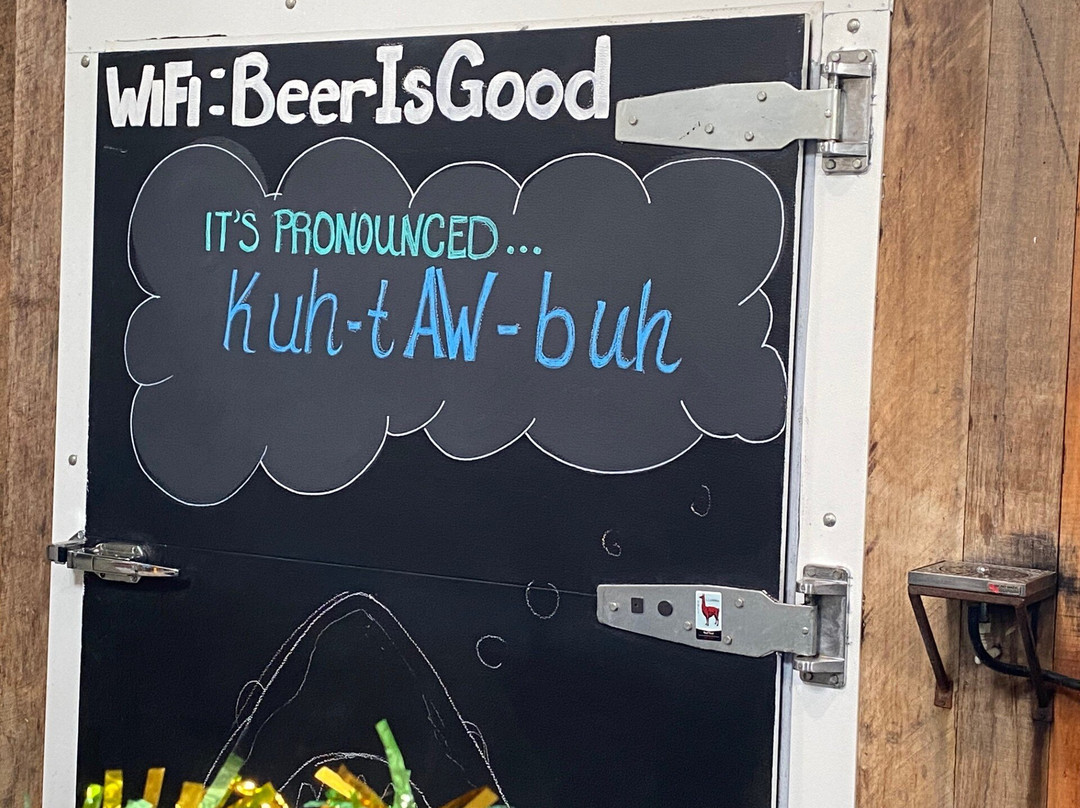 WiFi: BeerIsGood
IT'S PRONOUNCED...
Kuh-tAW-buh